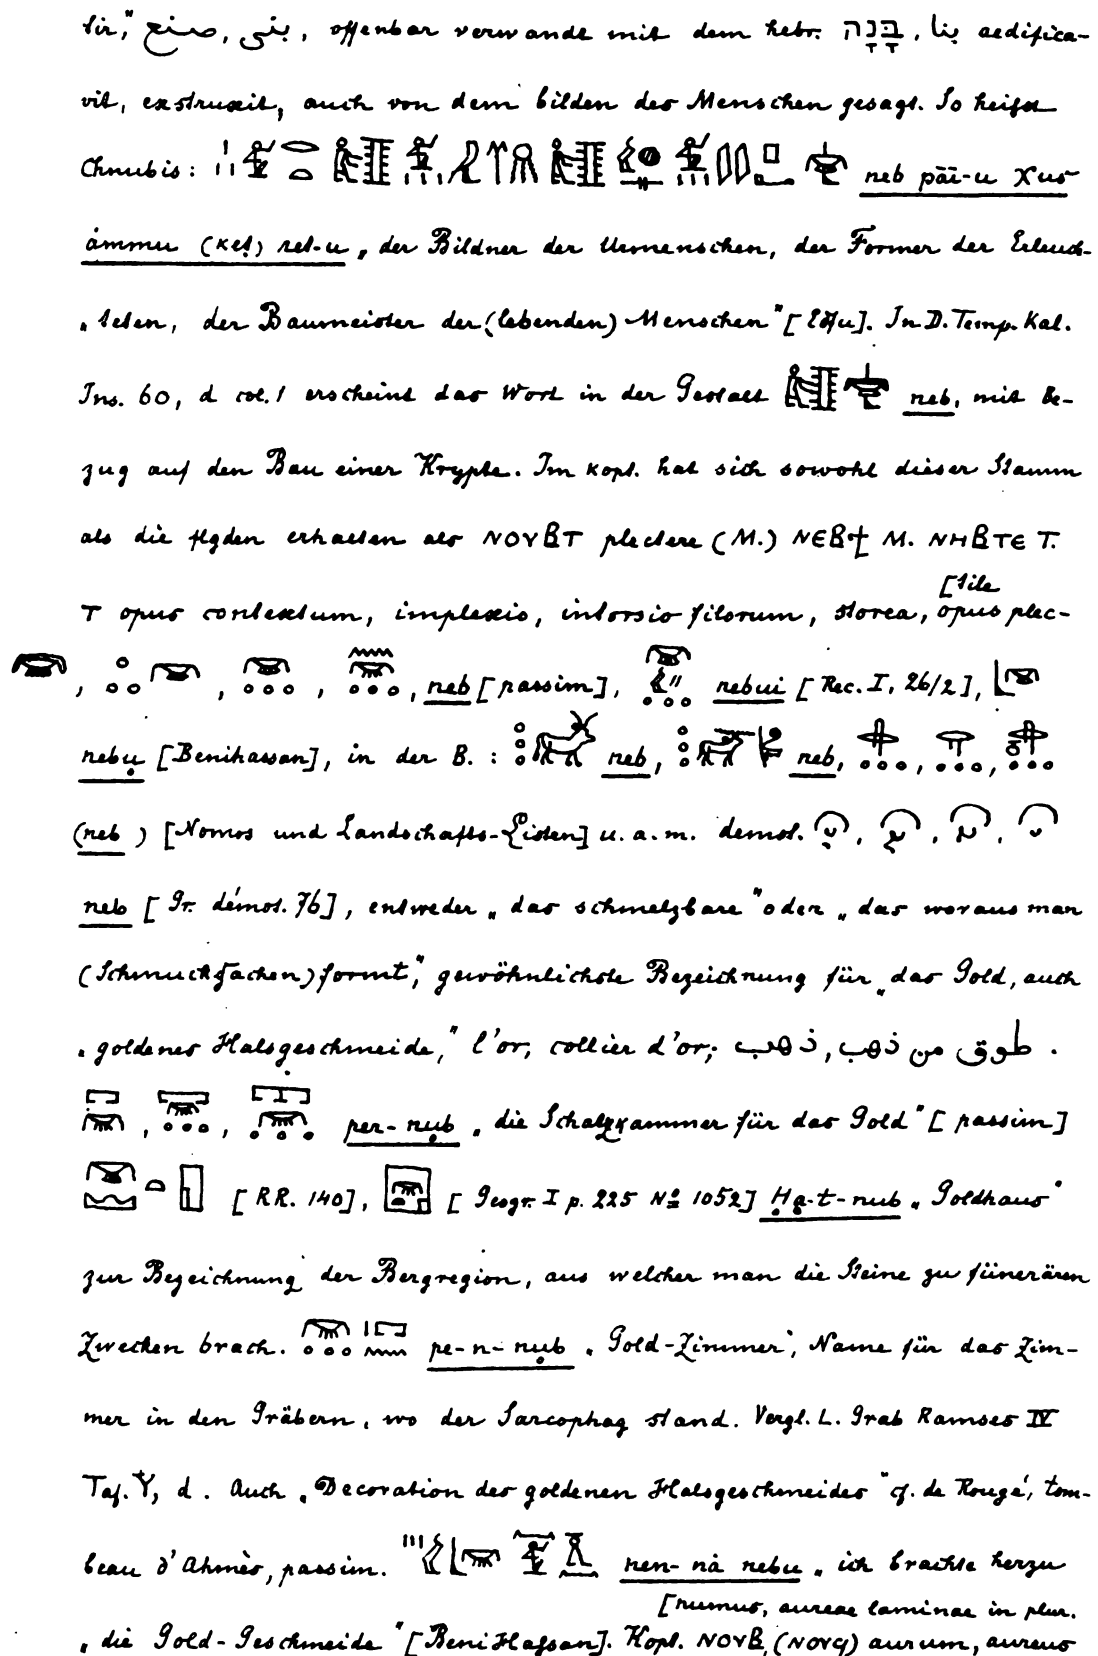 tir," صنع, بنى, offenbar verwandt mit dem hebr. בָּנָה, بنا aedifica-
vit, exstruxit, auch von dem bilden des Menschen gesagt. So heißt
Chnubis: neb pāi-u χus
ámmu (ḳeṭ) ret-u „der Bildner der Urmenschen, der Former der Erleuch-
„teten, der Baumeister der (lebenden) Menschen" [Edfu]. In D. Temp. Kal.
Ins. 60, d col. 1 erscheint das Wort in der Gestalt neb, mit Be-
zug auf den Bau einer Krypte. Im kopt. hat sich sowohl dieser Stamm
als die flgden erhalten als ⲚⲞⲨⲂⲦ plectere (M.) ⲚⲈⲂϯ M. ⲚⲎⲂⲦⲈ T.
[tile
ⲧ opus contextum, implexio, intorsio filorum, storea, opus plec-
, , , , neb [passim], nebui [Rec. I, 26/2],
nebu̟ [Benihassan], in der B.: neb, neb, , ,
(neb) [Nomos und Landschafts-Listen] u. a. m. demot. , , ,
neb [Gr. démot. 76], entweder „das schmelzbare" oder „das woraus man
(Schmucksachen) formt", gewöhnlichste Bezeichnung für „das Gold, auch
„goldenes Halsgeschmeide," l'or, collier d'or; ذهب, طوق من ذهب.
, , per-nu̟b „die Schatzkammer für das Gold" [passim]
[RR. 140], [Geogr. I p. 225 Nº 1052] Ḥa̟-t-nub „Goldhaus"
zur Bezeichnung der Bergregion, aus welcher man die Steine zu fünerären
Zwecken brach. pe-n-nu̟b „Gold-Zimmer", Name für das Zim-
mer in den Gräbern, wo der Sarcophag stand. Vergl. L. Grab Ramses IV
Taf. Y, d. Auch „Decoration des goldenen Halsgeschmeides" cf. de Rougé, tom-
beau d'Ahmès, passim. nen-ná nebu „ich brachte herzu
[numus, aureae laminae in plur.
„die Gold-Geschmeide" [BeniHassan]. Kopt. ⲚⲞⲨⲂ, (ⲚⲞⲨϤ) aurum, aureus